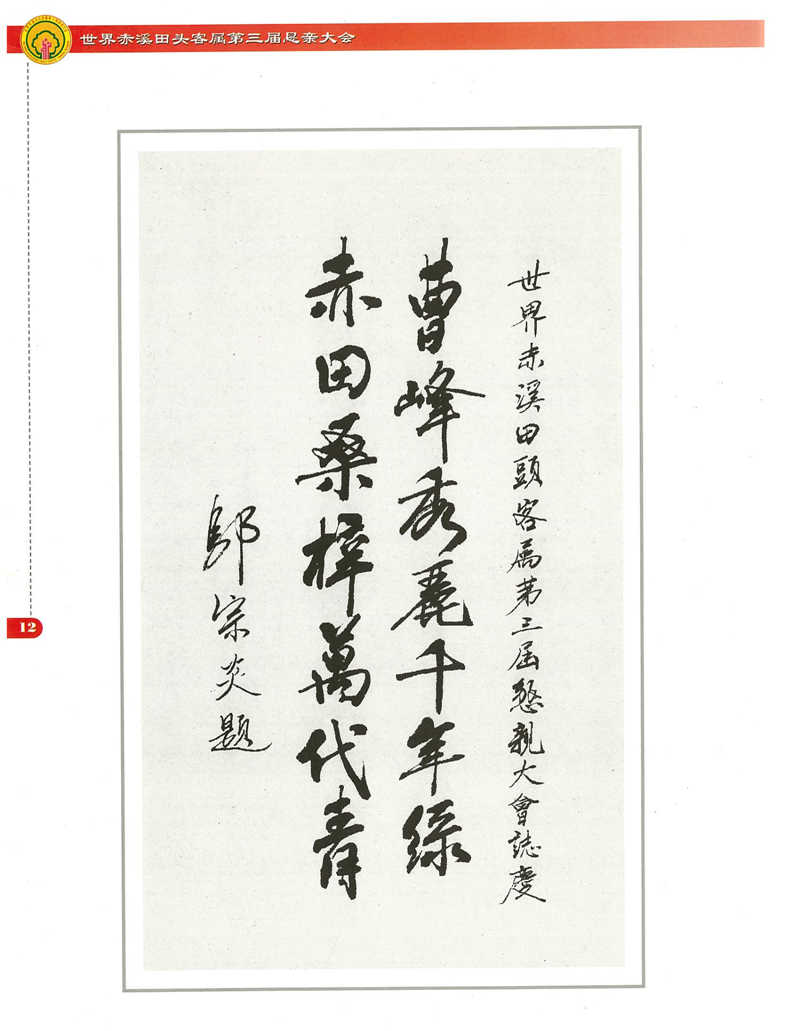 世界赤溪田头客属第三届恳亲大会
世界赤溪田頭客属第三届懇親大會誌慶
曹峰秀麗千年绿
赤田桑梓萬代青
鄔宗炎題
12